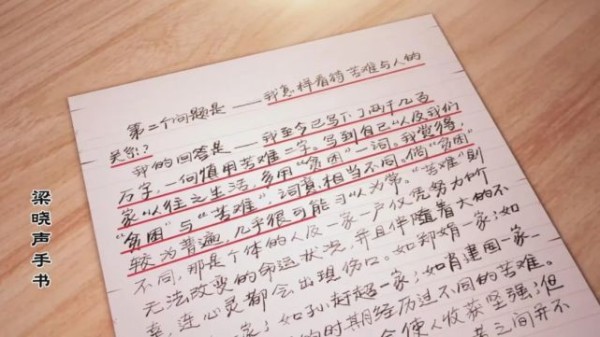 第二个问题是——我怎样看待苦难与人的
关系?
我的回答是——我至今已写了两千几百
万字,一向慎用苦难二字。写到自己以及我们
家以往之生活,多用"贫困"一词。我觉得,
"贫困"与"苦难",词意相当不同。倘"贫困"
较为普遍,几乎很可能习以为常。"苦难"则
不同,那是个体的人及一家一户仅凭努力所
无法改变的命运状况,并且伴随着大的不
幸,连心灵都会出现伤口。如郑娟一家;如
家;如孙赶超一家;如肖建国一家
的时期经历过不同的苦难。
会使人收获坚强;但
者之间并不
梁晓声手书